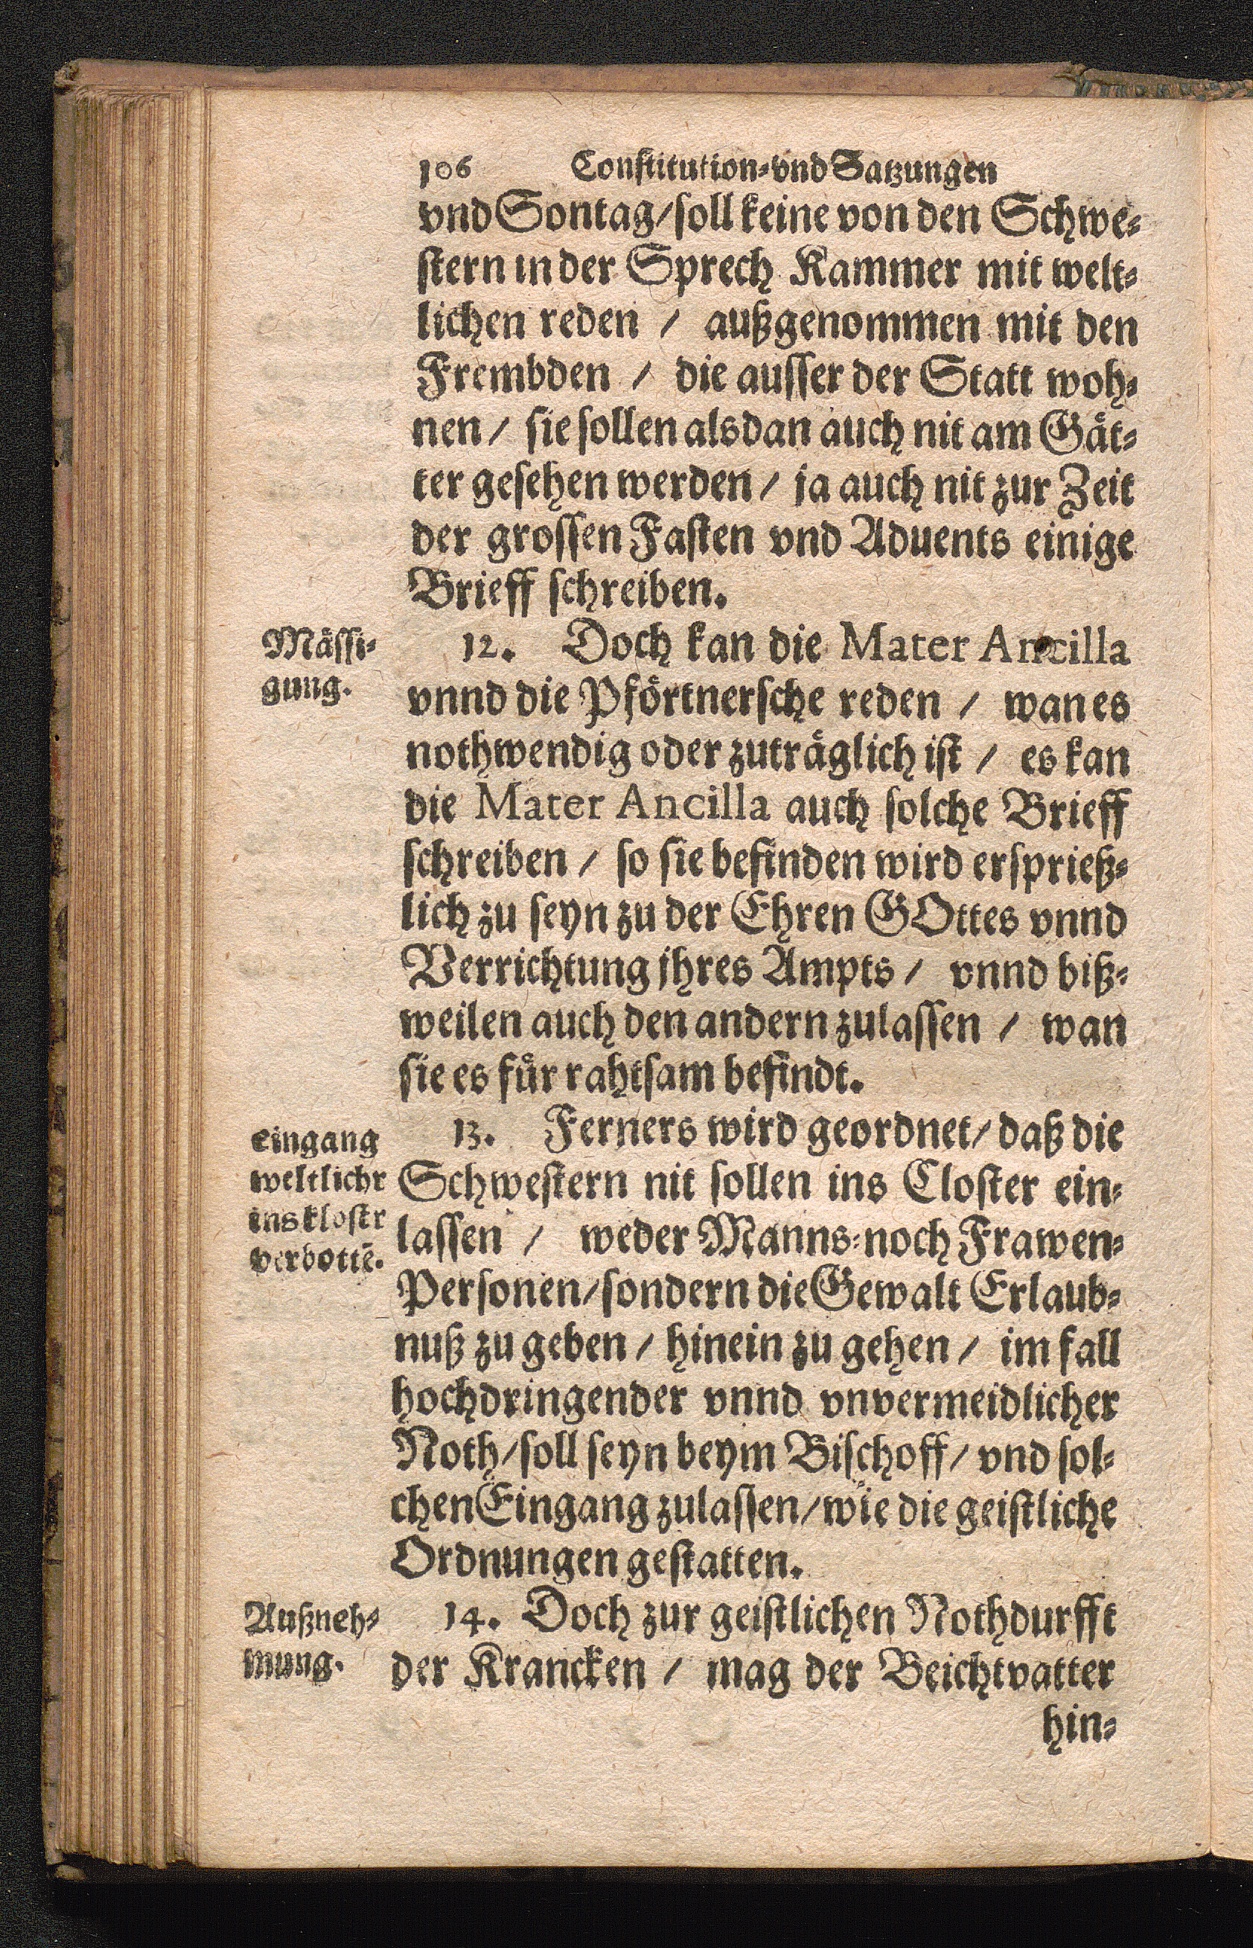 106 Constitution-vnd Satzungen
vnd Sontag/soll keine von den Schwe-
stern in der Sprech Kammer mit welt-
lichen reden / außgenommen mit den
Frembden / die ausser der Statt woh-
nen / sie sollen alsdan auch nit am Gät-
ter gesehen werden / ja auch nit zur Zeit
der grossen Fasten vnd Aduents einige
Brieff schreiben.
Mässi-
gung.
12. Doch kan die Mater Ancilla
vnnd die Pförtnersche reden / wan es
nothwendig oder zuträglich ist / es kan
die Mater Ancilla auch solche Brieff
schreiben / so sie befinden wird ersprieß-
lich zu seyn zu der Ehren GOttes vnnd
Verrichtung jhres Ampts / vnnd biß-
weilen auch den andern zulassen / wan
sie es für rahtsam befindt.
eingang
weltlichr
ins klostr
verbottē.
13. Ferners wird geordnet/ daß die
Schwestern nit sollen ins Closter ein-
lassen / weder Manns-noch Frawen-
Personen/sondern die Gewalt Erlaub-
nuß zu geben / hinein zu gehen / im fall
hochdringender vnnd vnvermeidlicher
Noth/soll seyn beym Bischoff/ vnd sol-
chen Eingang zulassen/wie die geistliche
Ordnungen gestatten.
Außneh-
mung.
14. Doch zur geistlichen Nothdurfft
der Krancken / mag der Beichtvatter
hin-